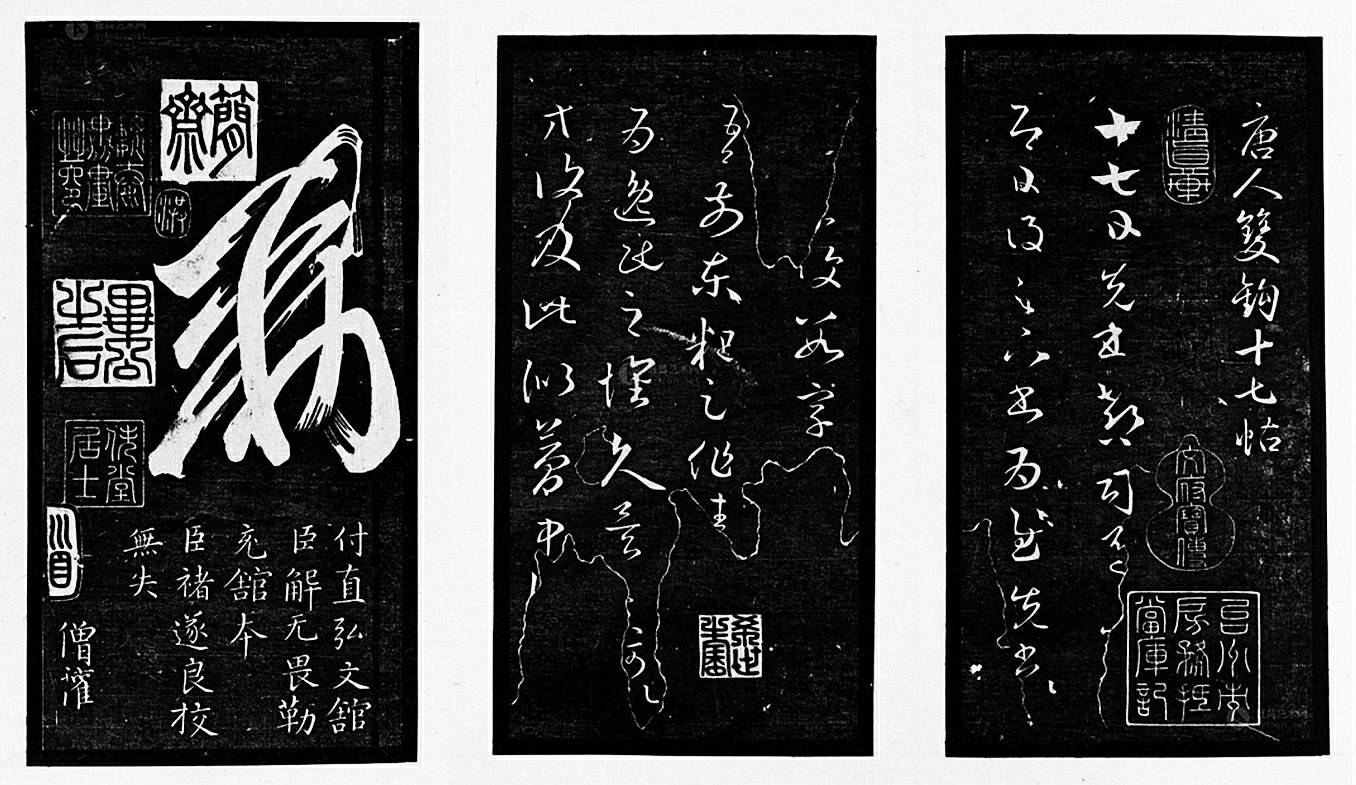 唐人雙鉤十七帖
十七日先書郗司馬
即日得足下書為慰先書
文府寶傳
復數字
吾前東粗足作佳
為逸民之懷久矣
方復及此似夢中
敕
簡齋
畢公之后
付直弘文館
臣解无畏勒
充館本
臣褚遂良校
無失
僧權